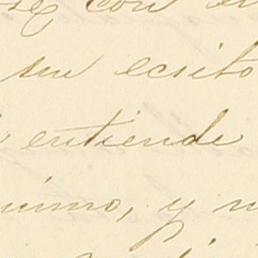 se con
su escrito
entiende
nimo, y